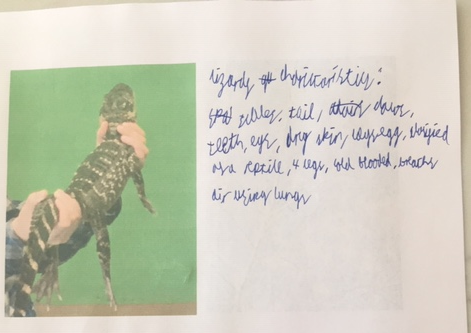 lizards charicaristics:
scales, tail, claws,
teeth, eyes, dry skin, lays egg, classified
as a reptile, 4 legs, cold blooded, breaths
air using lungs